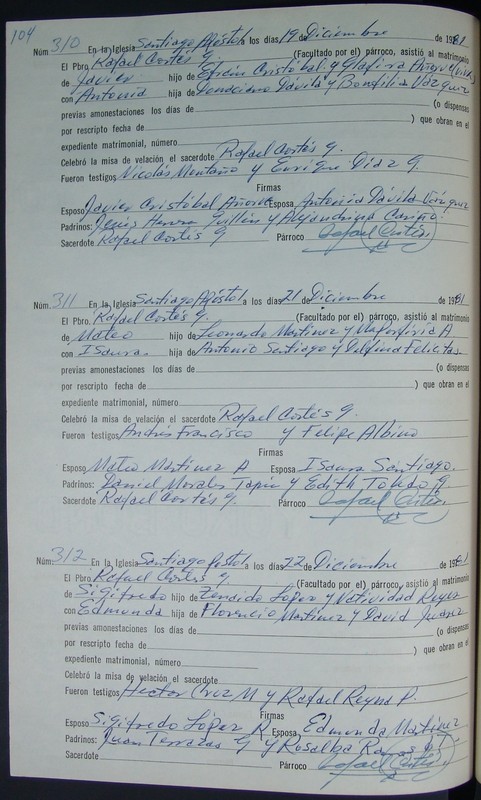 104
Núm. 310 En la Iglesia Santiago Apóstol a los días 19 de Diciembre de 1981
El Pbro. Rafael Cortés G. (Facultado por el) párroco, asistió al matrimonio
de Javier hijo de Efrén Cristóbal y Glafira
con Antonia hija de Donaciano Dávila y Bonfilia Vázquez
previas amonestaciones los días de (o dispensas
por rescripto fecha de ) que obran en el
expediente matrimonial, número
Celebró la misa de velación el sacerdote Rafael Cortés G.
Fueron testigos Nicolás Montaño y Enrique Díaz G.
Firmas
Esposo Javier Cristóbal Esposa Antonia Dávila Vázquez
Padrinos: Jesús Herrera Guillén y Alejandrina Cariño
Sacerdote Rafael Cortés G Párroco Rafael Cortés
Núm. 311 En la Iglesia Santiago Apóstol a los días 21 de Diciembre de 1981
El Pbro. Rafael Cortés G. (Facultado por el) párroco, asistió al matrimonio
de Mateo hijo de Leonardo Martínez y A
con Isaura hija de Antonio Santiago y Felicitas
previas amonestaciones los días de (o dispensas
por rescripto fecha de ) que obran en el
expediente matrimonial, número
Celebró la misa de velación el sacerdote Rafael Cortés G.
Fueron testigos Andrés Francisco y Felipe Albino
Firmas
Esposo Mateo Martínez A Esposa Isaura Santiago.
Padrinos: Daniel Morales Tapia y Edith Toledo
Sacerdote Rafael Cortés G. Párroco Rafael Cortés
Núm. 312 En la Iglesia Santiago a los días 22 de Diciembre de 1981
El Pbro. Rafael Cortés G (Facultado por el) párroco, asistió al matrimonio
de Sigifredo hijo de López y Natividad Reyes
con Edmunda hija de Florencio Martínez y David Juárez
previas amonestaciones los días de (o dispensas
por rescripto fecha de ) que obran en el
expediente matrimonial, número
Celebró la misa de velación el sacerdote
Fueron testigos Hector Cruz M y Rafael Reyna P.
Firmas
Esposo Sigifredo López R. Esposa Edmunda Martínez
Padrinos: Juan Terrazas G y Rosalba
Sacerdote Párroco Rafael Cortés